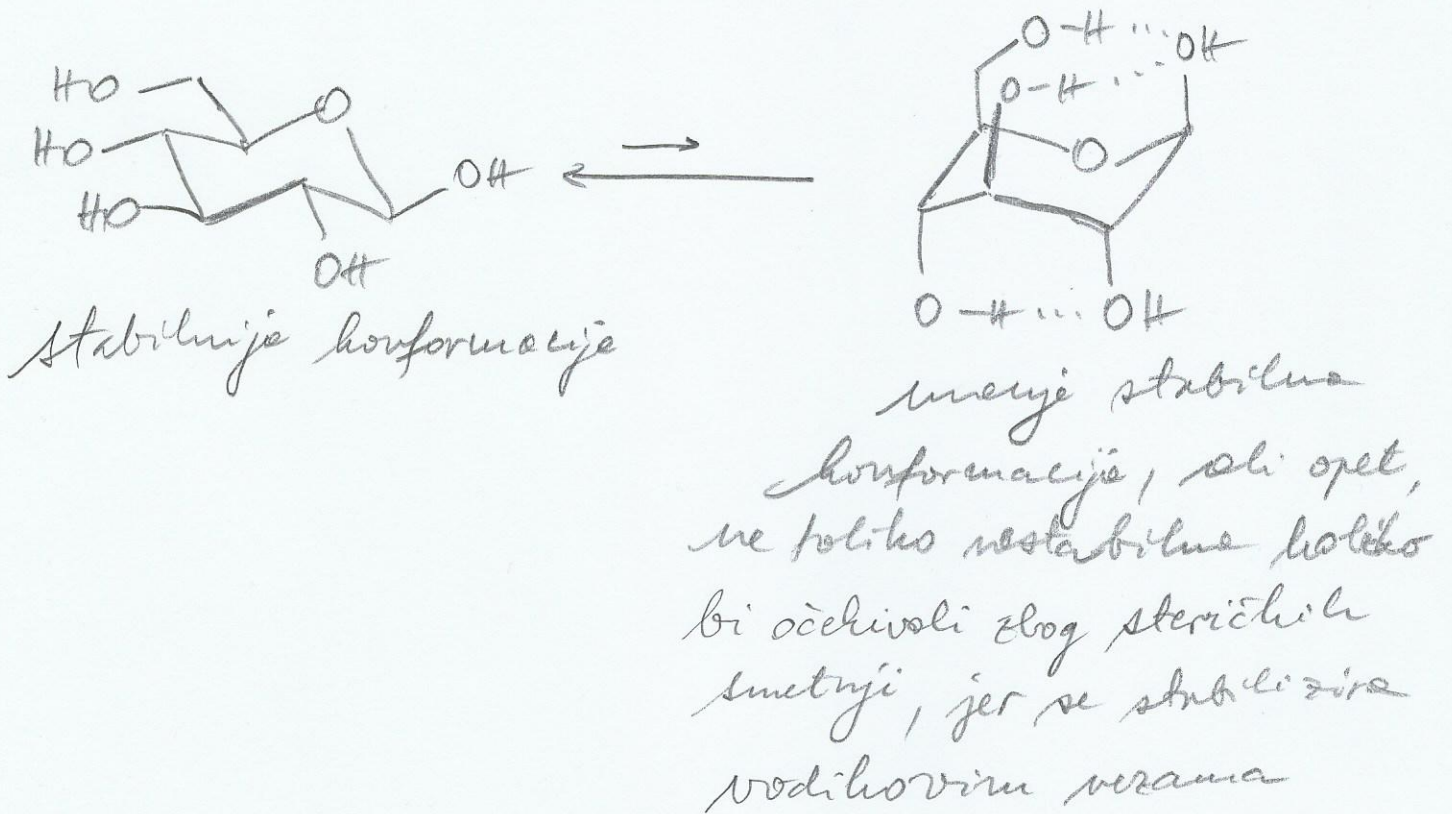 HO
HO
HO
O
OH
OH
O-H ... OH
O-H ...
O
O-H ... OH
stabilnija konformacija
manje stabilna
konformacija, ali opet,
ne toliko nestabilna koliko
bi očekivali zbog steričkih
smetnji, jer se stabilizira
vodikovim vezama